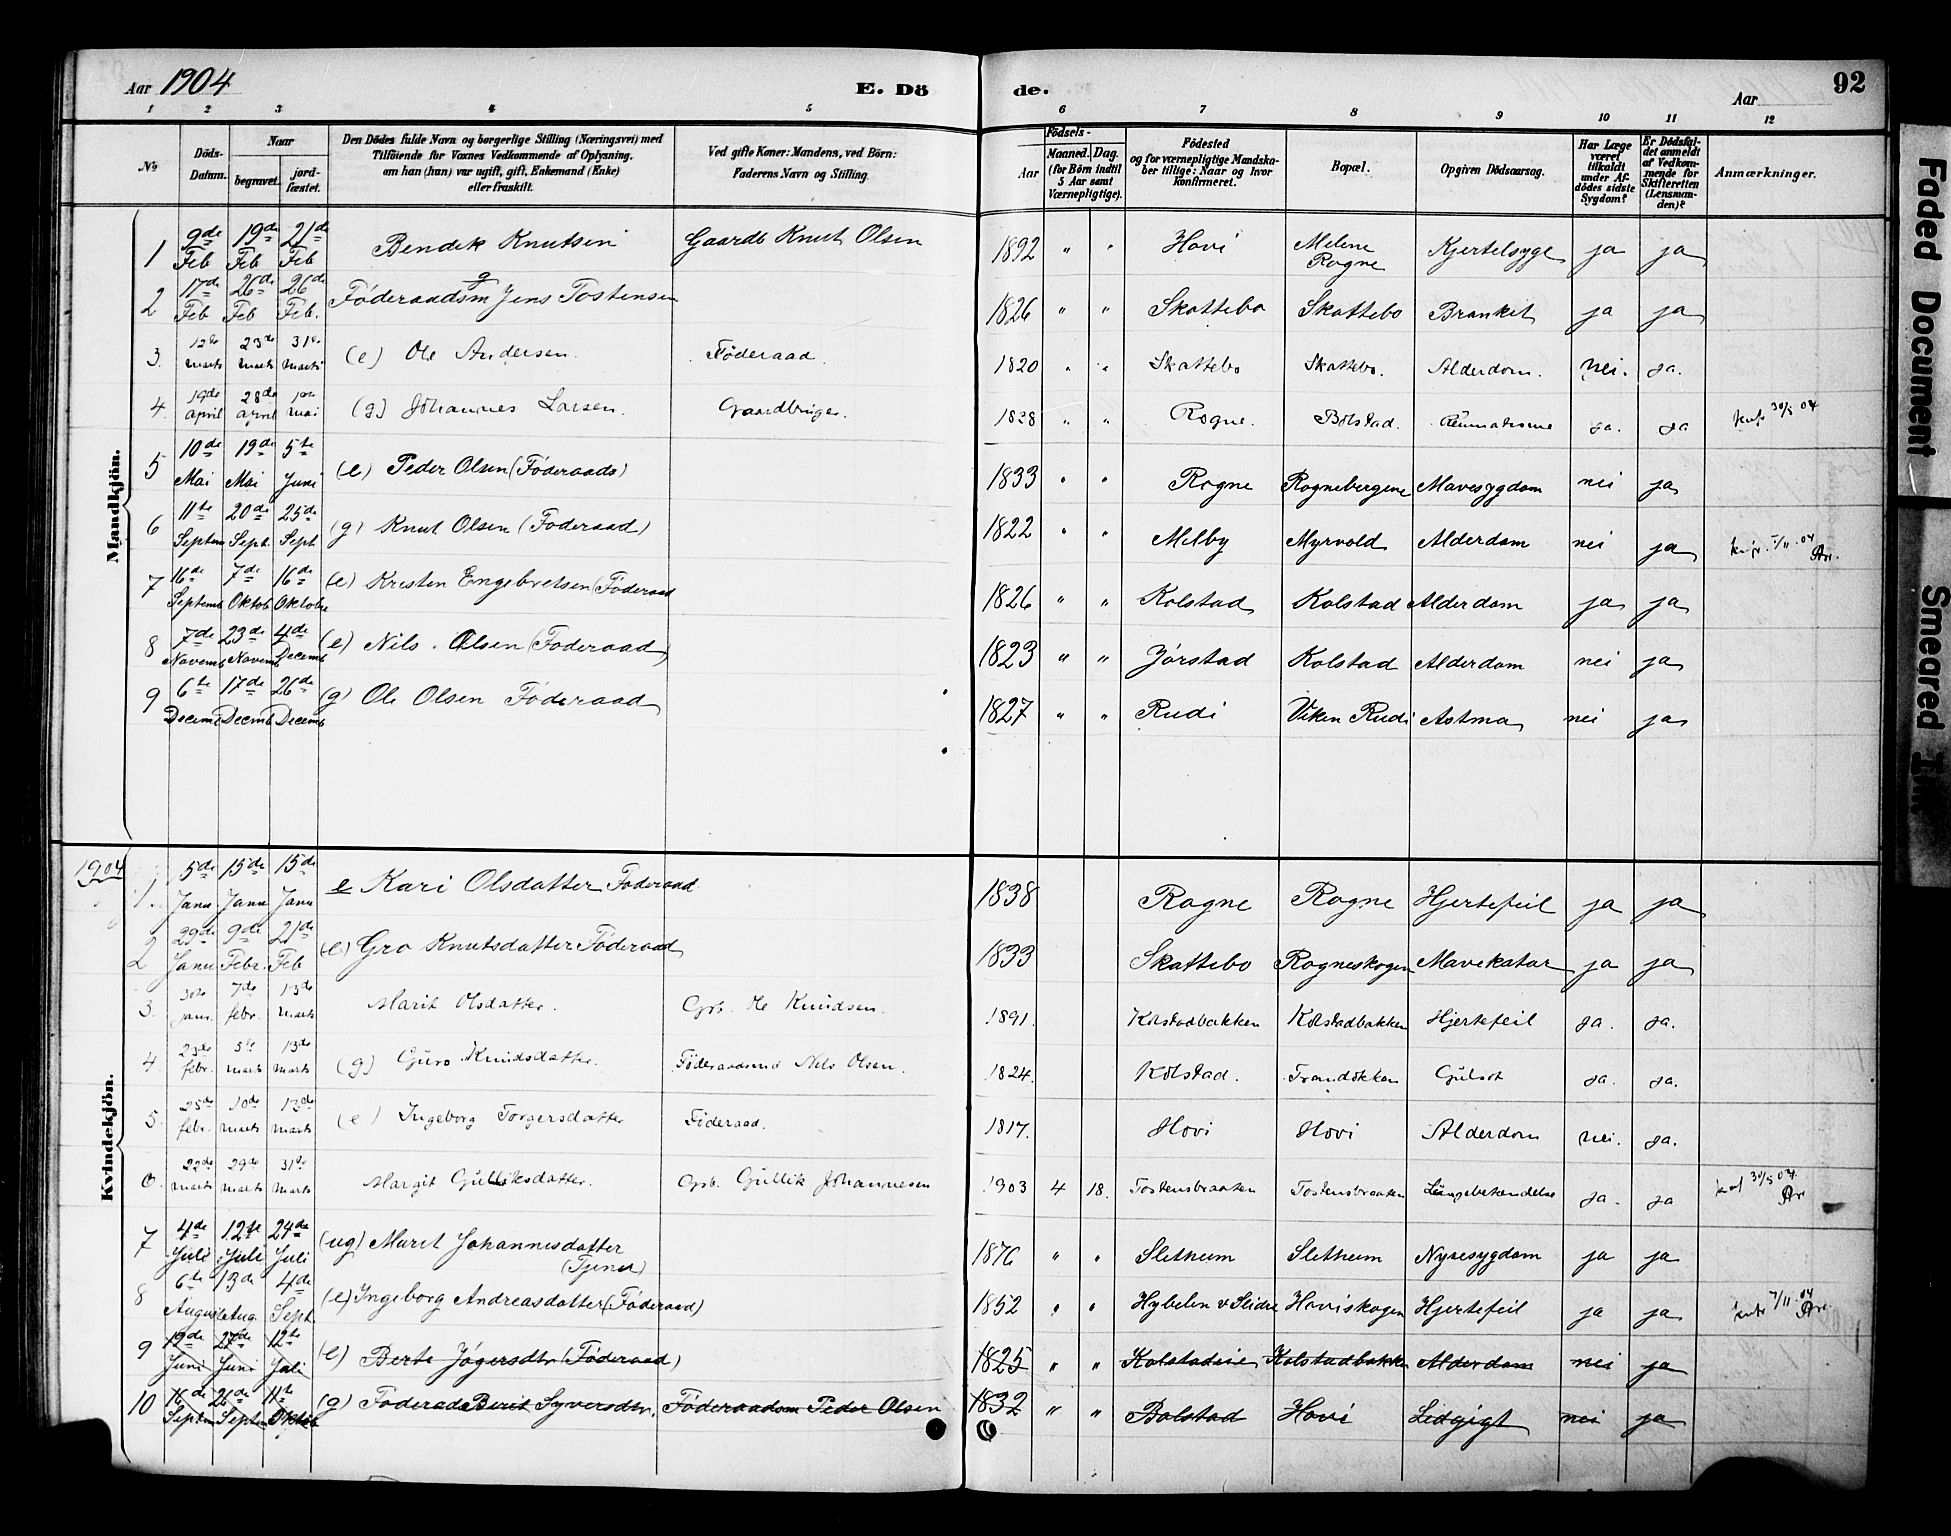 Aar 1904
E. Dö
de.
Aar
92
1 2 3 4 5 6 7 8 9 10 11 12
No
Döds-Datum.
Naar
begravet.
jord-fæstet.
Den Dödes fulde Navn og borgerlige Stilling (Næringsvei) med
Tilföiende for Voxnes Vedkommende af Oplysning,
om han (hun) var ugift, gift, Enkemand (Enke)
eller fraskilt.
Ved gifte Koner: Mandens, ved Börn:
Faderens Navn og Stilling.
Födsels-
Aar
Maaned. Dag.
(for Börn indtil
5 Aar samt
Værnepligtige).
Födested
og for værnepligtige Mandska-
ber tillige: Naar og hvor
Konfirmeret.
Bopæl.
Opgiven Dödsaarsag.
Har Læge
været
tilkaldt
under Af-
dödes sidste
Sygdom?
Er Dödsfal-
det anmeldt
af Vedkom-
mende for
Skifteretten
(Lensman-
den)?
Anmærkninger.
Mandkjön.
1 9de Feb 19de Feb 21de Feb Bendik Knutsen Gaardb Knut Olsen 1892 " " Hovi Melene Rogne Kjertelsyge ja ja
2 17de Feb 26de Feb 26de Feb. Föderaadsm g Jens Tostensen 1826 " " Skattebo Skattebo Brankit ja ja
3. 12te marts 23de marts 31te marts (e) Ole Andersen. Föderaad. 1820 " " Skattebo Skattebo. Alderdom. nei. ja.
4. 19de april 28de april 1ste mai (g) Johannes Larsen. Gaardbruger. 1838 " " Rogne. Bolstad. Reumatisme ja. ja 30/5 04
5 10de Mai 19de Mai 5te Juni (e) Peder Olsen (Föderaads) 1833 " " Rogne Rognebergene Mavesygdom nei ja
6 11te Septem 20de Sept. 25de Sept (g) Knut Olsen (Föderaad) 1822 " " Melby Myrvold Alderdom nei ja 7/11.04
7 16de Septemb 7de Oktob 16de Oktober (e) Kristen Engebretsen (Föderaad 1826 " " Kolstad Kolstad Alderdom ja ja
8 7de Novemb 23de Novemb 4de Decemb (e) Nils Olsen (Föderaad) 1823 " " Jörstad Kolstad Alderdom nei ja
9 6te Decemb 17de Decemb 26de Decemb (g) Ole Olsen Föderaad 1827 " " Rudi Viken Rudi Astma nei ja
1904
Kvindekjön.
1. 5de Janu 15de Janu 15de Janu e Kari Olsdatter Föderaad 1838 Rogne Rogne Hjertefeil ja ja
2 29de Janu 9de Febr. 21de Feb (e) Gro Knutsdatter Föderaad 1833 Skattebo Rogneskogen Mavekatar ja ja
3. 30te janr. 7de febr. 13de marts Marit Olsdatter. Grb. Ole Knudsen. 1891. Kolstadbakken Kolstadbakken Hjertefeil ja. ja.
4. 23de febr. 5te marts 13de marts (g) Guro Knudsdatter. Föderaadsmd Nils Olsen. 1824. Kolstad. Gulsot ja. ja.
5. 25de febr. 10de marts 13de marts (e) Ingeborg Torgersdatter Föderaad. 1817. Hovi Hovi Alderdom nei. ja.
6. 22de marts 29de marts 31te marts Margit Gulliksdatter. Grb. Gullik Johannesen 1903 4 18. Tostensbraaten Tostensbraaten Lungebetændelse ja. ja 30/5 04
7 4de Juli 12te Juli 24de Juli (ug) Marit Johannesdatter (Tjener) 1876 " " Sletheim Sletheim Nyresygdom ja ja
8 6te August 13de Aug. 4de Sept. (e) Ingeborg Andreasdatter (Föderaad) 1852 " " Hybelen v Slidre Hoviskogen Hjertefeil ja ja 7/11.04
9 19de Juni 27de Juni 12te Juli (e) Berte Jögersdtr (Föderaad) 1825 " " Kolstadeie Kolstadbakken Alderdom nei ja
10 16de Septem 26de Septem 11te Oktob (g) Föderaads Berit Syversdtr. Föderaadsm Peder Olsen 1832 " " Bolstad Hovi Ledgigt nei ja
Faded Document
Smeared